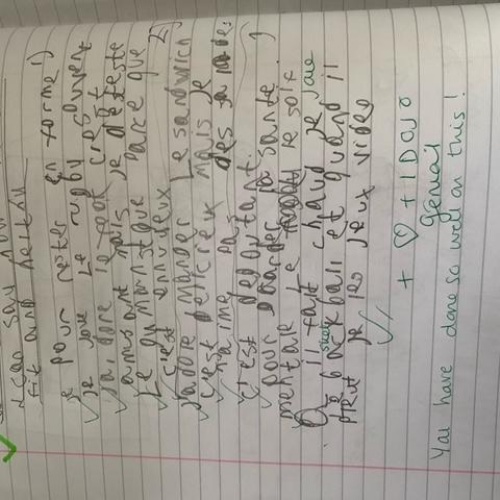 I can say how
fit and healthy
pour rester en forme 1)
je joue le rugby souvent
J'adore le foot c'est
amusant mais je déteste
Le gymnastique parce que
c'est ennuyeux 2)
J'adore manger Le sandwich
c'est délicieux mais je
n'aime pas des
c'est degoutant.
pour garder la santé
mentale Le soir
il fait chaud je joue
le basketball et quand il
pleut je les jeux video
+ ♡ + 1 DOJO
génial
You have done so well on this!